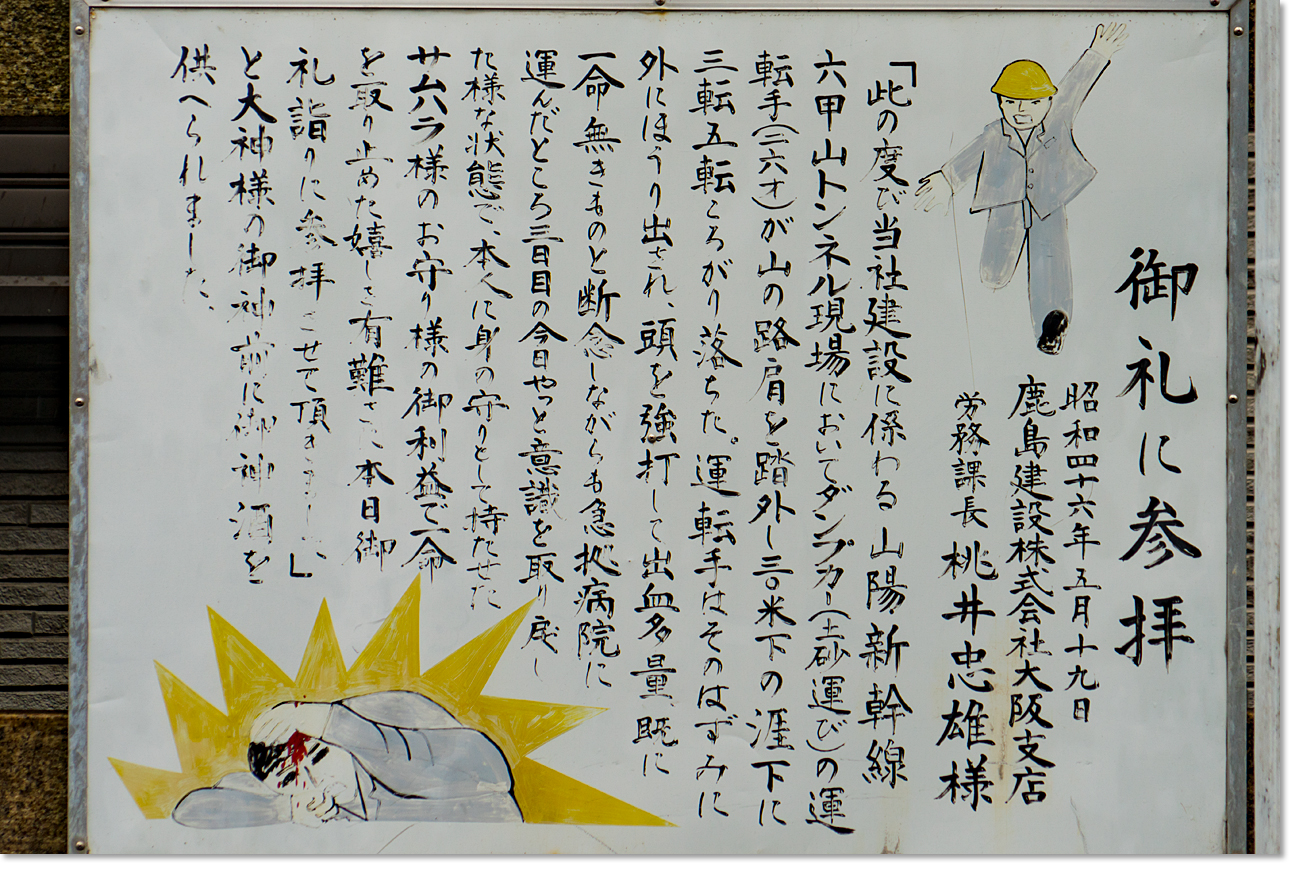 御礼に参拝
昭和四十六年五月十九日
鹿島建設株式会社大阪支店
労務課長 桃井忠雄様
「此の度び当社建設に係わる山陽新幹線
六甲山トンネル現場においてダンプカー(土砂運び)の運
転手(二六才)が山の路肩を踏外し三〇米下の涯下に
三転五転ころがり落ちた。運転手はそのはずみに
外にほうり出され、頭を強打して出血多量、既に
一命無きものと断念しながらも急拠病院に
運んだところ三日目の今日やっと意識を取り戻し
た様な状態で、本人に身の守りとして持たせた
サムハラ様のお守り様の御利益で一命
を取り止めた嬉しさ有難さに本日御
礼詣りに参拝させて頂きました」
と大神様の御神前に御神酒を
供へられました。